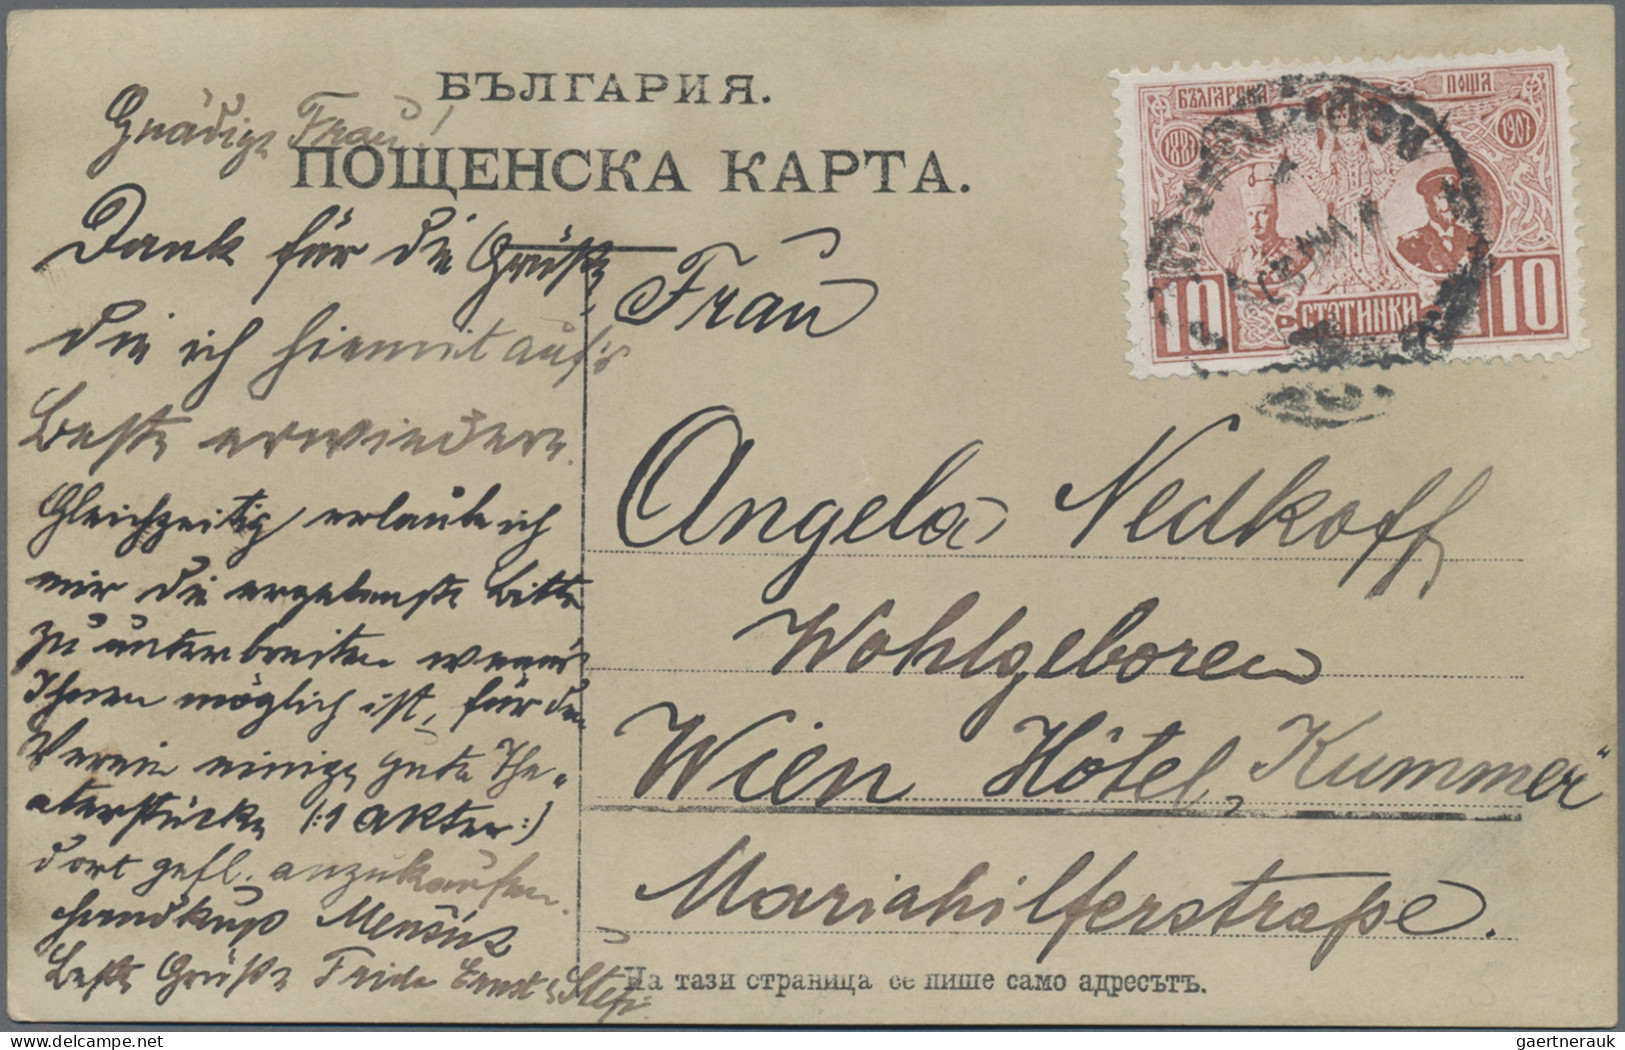 БЪЛГАРИЯ.
ПОЩЕНСКА КАРТА.
Gnädige Frau!
Dank für die Grüße,
die ich hiemit auf's
Beste erwiedere.
Gleichzeitig erlaube ich
mir die ergebenste Bitte
zu unterbreiten wenn's
Ihnen möglich ist, für den
Verein einige gute The„
aterstücke /:1 akter:/
dort gefl. anzukaufen.
Handkuß
Beste Grüße Frida Ernst & Stefi
Frau
Angela Nedkoff
Wohlgeboren
Wien Hôtel „Kummer"
Mariahilferstraße.
На тази страница се пише само адресътъ.
БЪЛГАРСКА ПОЩА
1887 1907
10 СТОТИНКИ 10
gaertnerauk